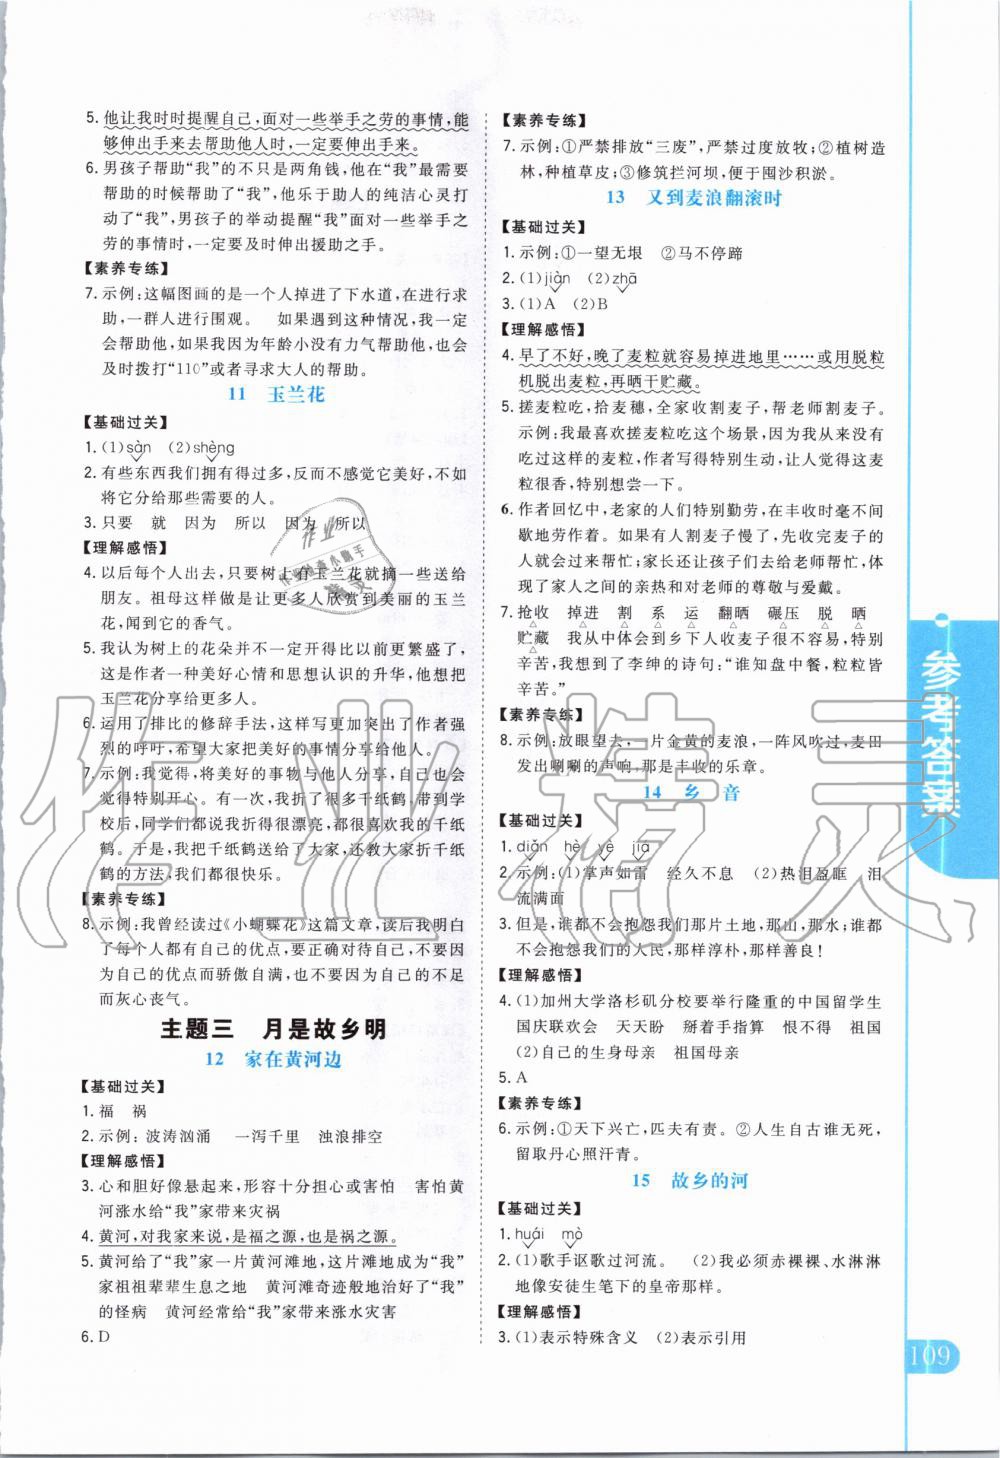 5. 他让我时时提醒自己,面对一些举手之劳的事情,能
够伸出手来去帮助他人时,一定要伸出手来。
6. 男孩子帮助“我”的不只是两角钱,他在“我”最需要
帮助的时候帮助了“我”,他乐于助人的纯洁心灵打
动了“我”,男孩子的举动提醒“我”面对一些举手之
劳的事情时,一定要及时伸出援助之手。
【素养专练】
7. 示例:这幅图画的是一个人掉进了下水道,在进行求
助,一群人进行围观。 如果遇到这种情况,我一定
会帮助他,如果因为年龄小没有力气帮助他,我也会
及时拨打“110”或者寻求大人的帮助。
11 玉兰花
【基础过关】
1. (1)sàn (2)shèng
2. 有些东西我们拥有得过多,反而不感觉它美好,不如
将它分给那些需要的人。
3. 只要 就 因为 所以 因为 所以
【理解感悟】
4. 以后每个人出去,只要树上有玉兰花就摘一些送给
朋友。祖母这样做是让更多人欣赏到美丽的玉兰
花,闻到它的香气。
5. 我认为树上的花朵并不一定开得比以前更繁盛了,
这是作者一种美好心情和思想认识的升华,他们把
玉兰花分享给更多人。
6. 运用了排比的修辞手法,这些句子突出了作者强烈
的呼吁,希望大家把美好的事情分享给他人。
7. 示例:我觉得,将美好的事物与他人一起分享,大家
都会觉得特别开心。有一次,我折了千纸鹤,带到学
校后,同学们都觉得很漂亮,都很喜欢我的千纸
鹤,于是我把千纸鹤送给了大家,还教大家折千纸
鹤的方法,我们都很快乐。
【素养专练】
8. 示例:我曾经读过《小蝴蝶花》这篇文章,读后我明白
了每个人都有自己的优点,要正确认识自己,不因
为自己的优点而骄傲自满,也不因为自己的不足
而灰心丧气。
主题三 月是故乡明
12 家在黄河边
【基础过关】
1. 福 祸
2. 示例:波涛汹涌 一泻千里 浊浪排空
【理解感悟】
3. 心和胆好像悬起来,形容十分担心或害怕 害怕黄
河涨水给“我”家带来灾祸
4. 黄河,对我家来说,是福之源,也是祸之源。
5. 黄河给了“我”家一片黄河滩地,这片滩地是“我”
家祖祖辈辈生息之地 黄河滩奇迹般地治好了“我”
的怪病 黄河经常给“我”家带来涨水灾害
6. D
【素养专练】
7. 示例:①严禁排放“三废”,严禁过度放牧;②植树造
林,种植草皮;③修筑拦河坝,便于囤沙积淤。
13 又到麦浪翻滚时
【基础过关】
1. 示例:①一望无垠 ②马不停蹄
2. (1)jiàn (2)zhā
3. (1)A (2)B
【理解感悟】
4. 早了不好,晚了麦粒就容易掉进地里……或用脱粒
机脱出麦粒,再晒干贮藏。
5. 搓麦粒吃,拾麦穗,全家收割麦子,帮老师割麦子。
示例:我最喜欢搓麦粒吃这个场景,因为我从来没有
吃过这样的麦粒,作者写得特别生动,让人觉得这麦
粒很香,特别想吃。
6. 作者回忆中,老家的人们特别勤劳,在丰收时毫不间
歇地劳作着。如果有人割麦子慢了些,先完成的人
会赶来帮忙;家长还让孩子们去给老师帮忙,体现
了家人之间的亲热和对老师的尊敬与爱戴。
7. 抢收 掉进 割 系 运 翻晒 碾压 脱 晒
贮藏 我从中体会到乡下人收麦子很不容易,特别
辛苦,我想到了李绅的诗句:“谁知盘中餐,粒粒皆
辛苦。”
【素养专练】
8. 示例:放眼望去,一片金黄的麦浪,一阵风吹过,麦田
发出唰唰的声响,那是丰收的乐章。
14 乡 音
【基础过关】
1. diǎn hè yè jiā
2. 示例:(1)掌声如雷 经久不息 (2)热泪盈眶 泪
流满面
3. 但是,谁都不会抱怨我们那片土地,那山,那水!谁都
不会抱怨我们的人民,那样淳朴,那样善良!
【理解感悟】
4. (1)加州大学洛杉矶分校要举行隆重的中国留学生
国庆联欢会 天天盼 掰着手指算 恨不得 祖国
(2)自己的生身母亲 祖国母亲
5. A
【素养专练】
6. 示例:①天下兴亡,匹夫有责。②人生自古谁无死,
留取丹心照汗青。
15 故乡的河
【基础过关】
1. huái mò
2. (1)歌手讴歌过河流。 (2)我必须赤裸裸、水淋淋
地像安徒生笔下的皇帝那样。
【理解感悟】
3. (1)表示特殊含义 (2)表示引用
参考答案
109
作业精灵